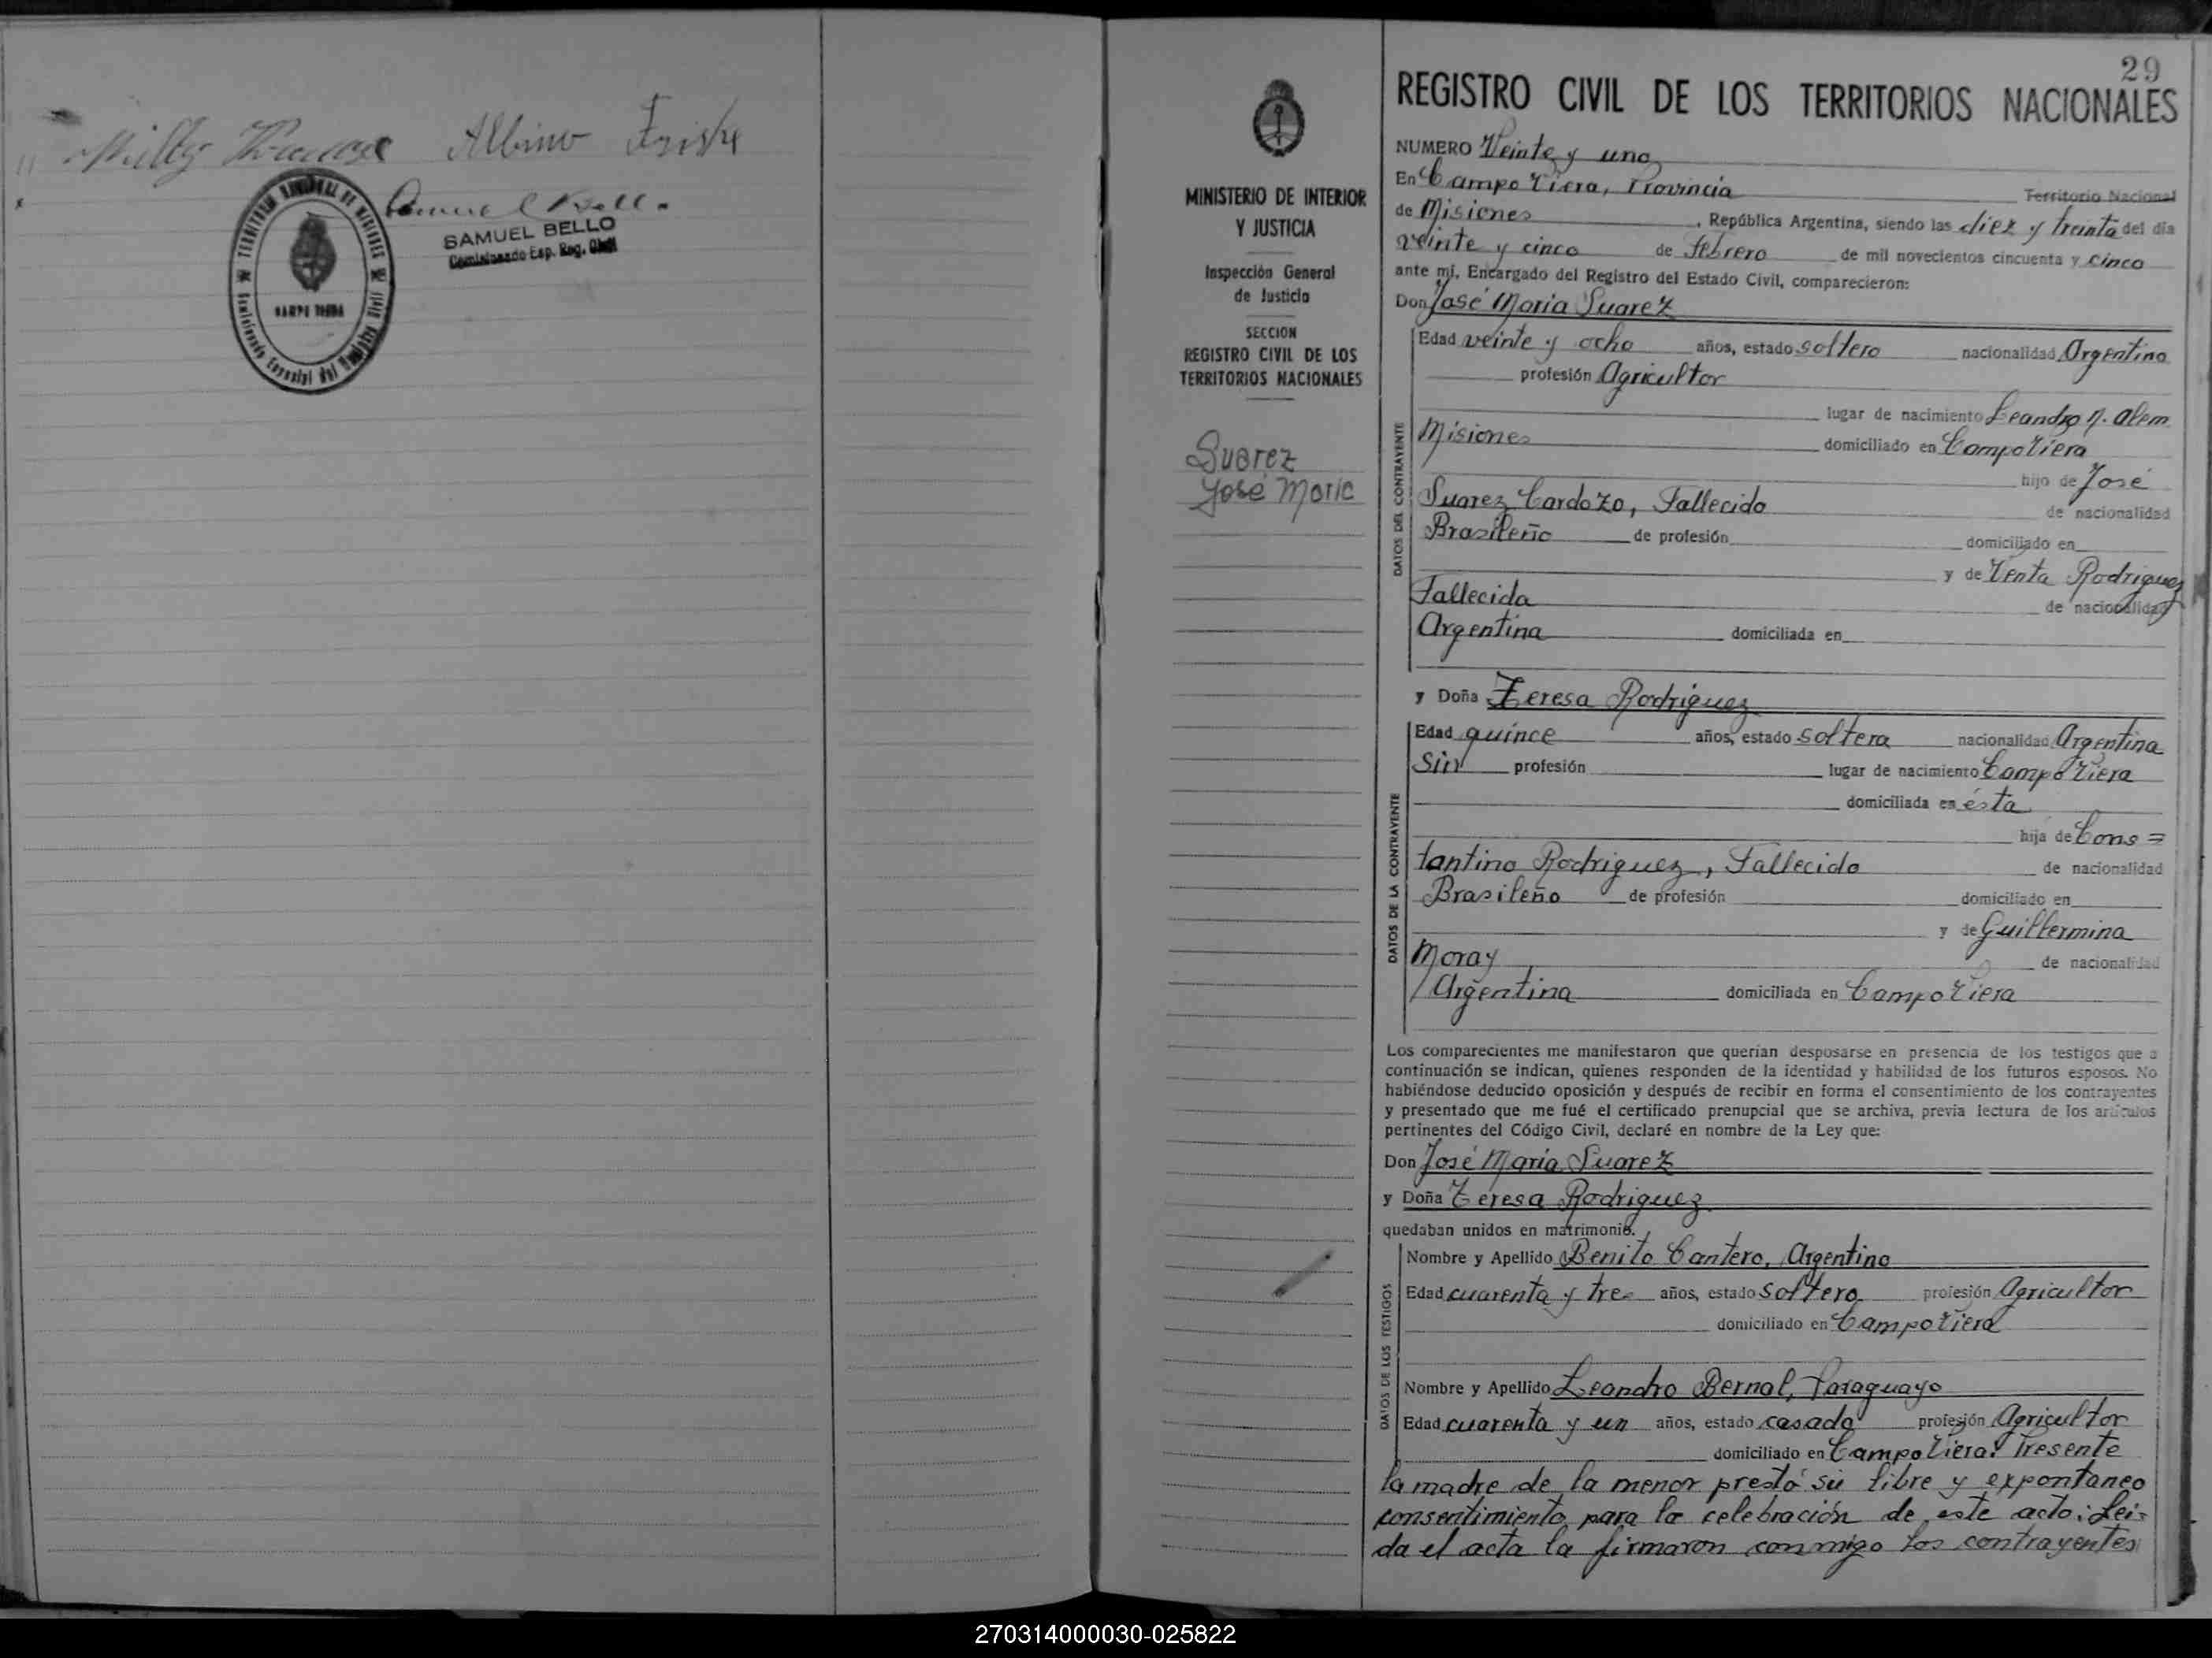 Milly Albino Friske
Samuel Bello
SAMUEL BELLO
Comisionado Esp. Reg. Civil
CAMPO VIERA
29
MINISTERIO DE INTERIOR
Y JUSTICIA
Inspección General
de Justicia
SECCION
REGISTRO CIVIL DE LOS
TERRITORIOS NACIONALES
Suarez
José Maria
REGISTRO CIVIL DE LOS TERRITORIOS NACIONALES
NUMERO Veinte y uno
En Campo Viera, Provincia Territorio Nacional
de Misiones, República Argentina, siendo las diez y treinta del día
veinte y cinco de febrero de mil novecientos cincuenta y cinco
ante mi, Encargado del Registro del Estado Civil, comparecieron:
Don José Maria Suarez
DATOS DEL CONTRAYENTE
Edad veinte y ocho años, estado soltero nacionalidad Argentino
profesión Agricultor
lugar de nacimiento Leandro N. Alem
Misiones domiciliado en Campo Viera
hijo de José
Suarez Cardozo, Fallecido de nacionalidad
Brasileño de profesión domiciliado en
y de Venta Rodriguez
Fallecida de nacionalidad
Argentina domiciliada en
y Doña Teresa Rodriguez
DATOS DE LA CONTRAYENTE
Edad quince años, estado soltera nacionalidad Argentina
Sin profesión lugar de nacimiento Campo Viera
domiciliada en ésta
hija de Cons=
tantino Rodriguez, Fallecido de nacionalidad
Brasileño de profesión domiciliado en
y de Guillermina
Moray de nacionalidad
Argentina domiciliada en Campo Viera
Los comparecientes me manifestaron que querían desposarse en presencia de los testigos que a
continuación se indican, quienes responden de la identidad y habilidad de los futuros esposos. No
habiéndose deducido oposición y después de recibir en forma el consentimiento de los contrayentes
y presentado que me fué el certificado prenupcial que se archiva, previa lectura de los artículos
pertinentes del Código Civil, declaré en nombre de la Ley que:
Don José Maria Suarez
y Doña Teresa Rodriguez
quedaban unidos en matrimonio.
DATOS DE LOS TESTIGOS
Nombre y Apellido Benito Cantero, Argentino
Edad cuarenta y tres años, estado soltero profesión Agricultor
domiciliado en Campo Viera
Nombre y Apellido Leandro Bernal, Paraguayo
Edad cuarenta y un años, estado casado profesión Agricultor
domiciliado en Campo Viera. Presente
la madre de la menor prestó su libre y expontaneo
consentimiento para la celebración de este acto: Lei=
da el acta la firmaron conmigo los contrayentes
270314000030-025822